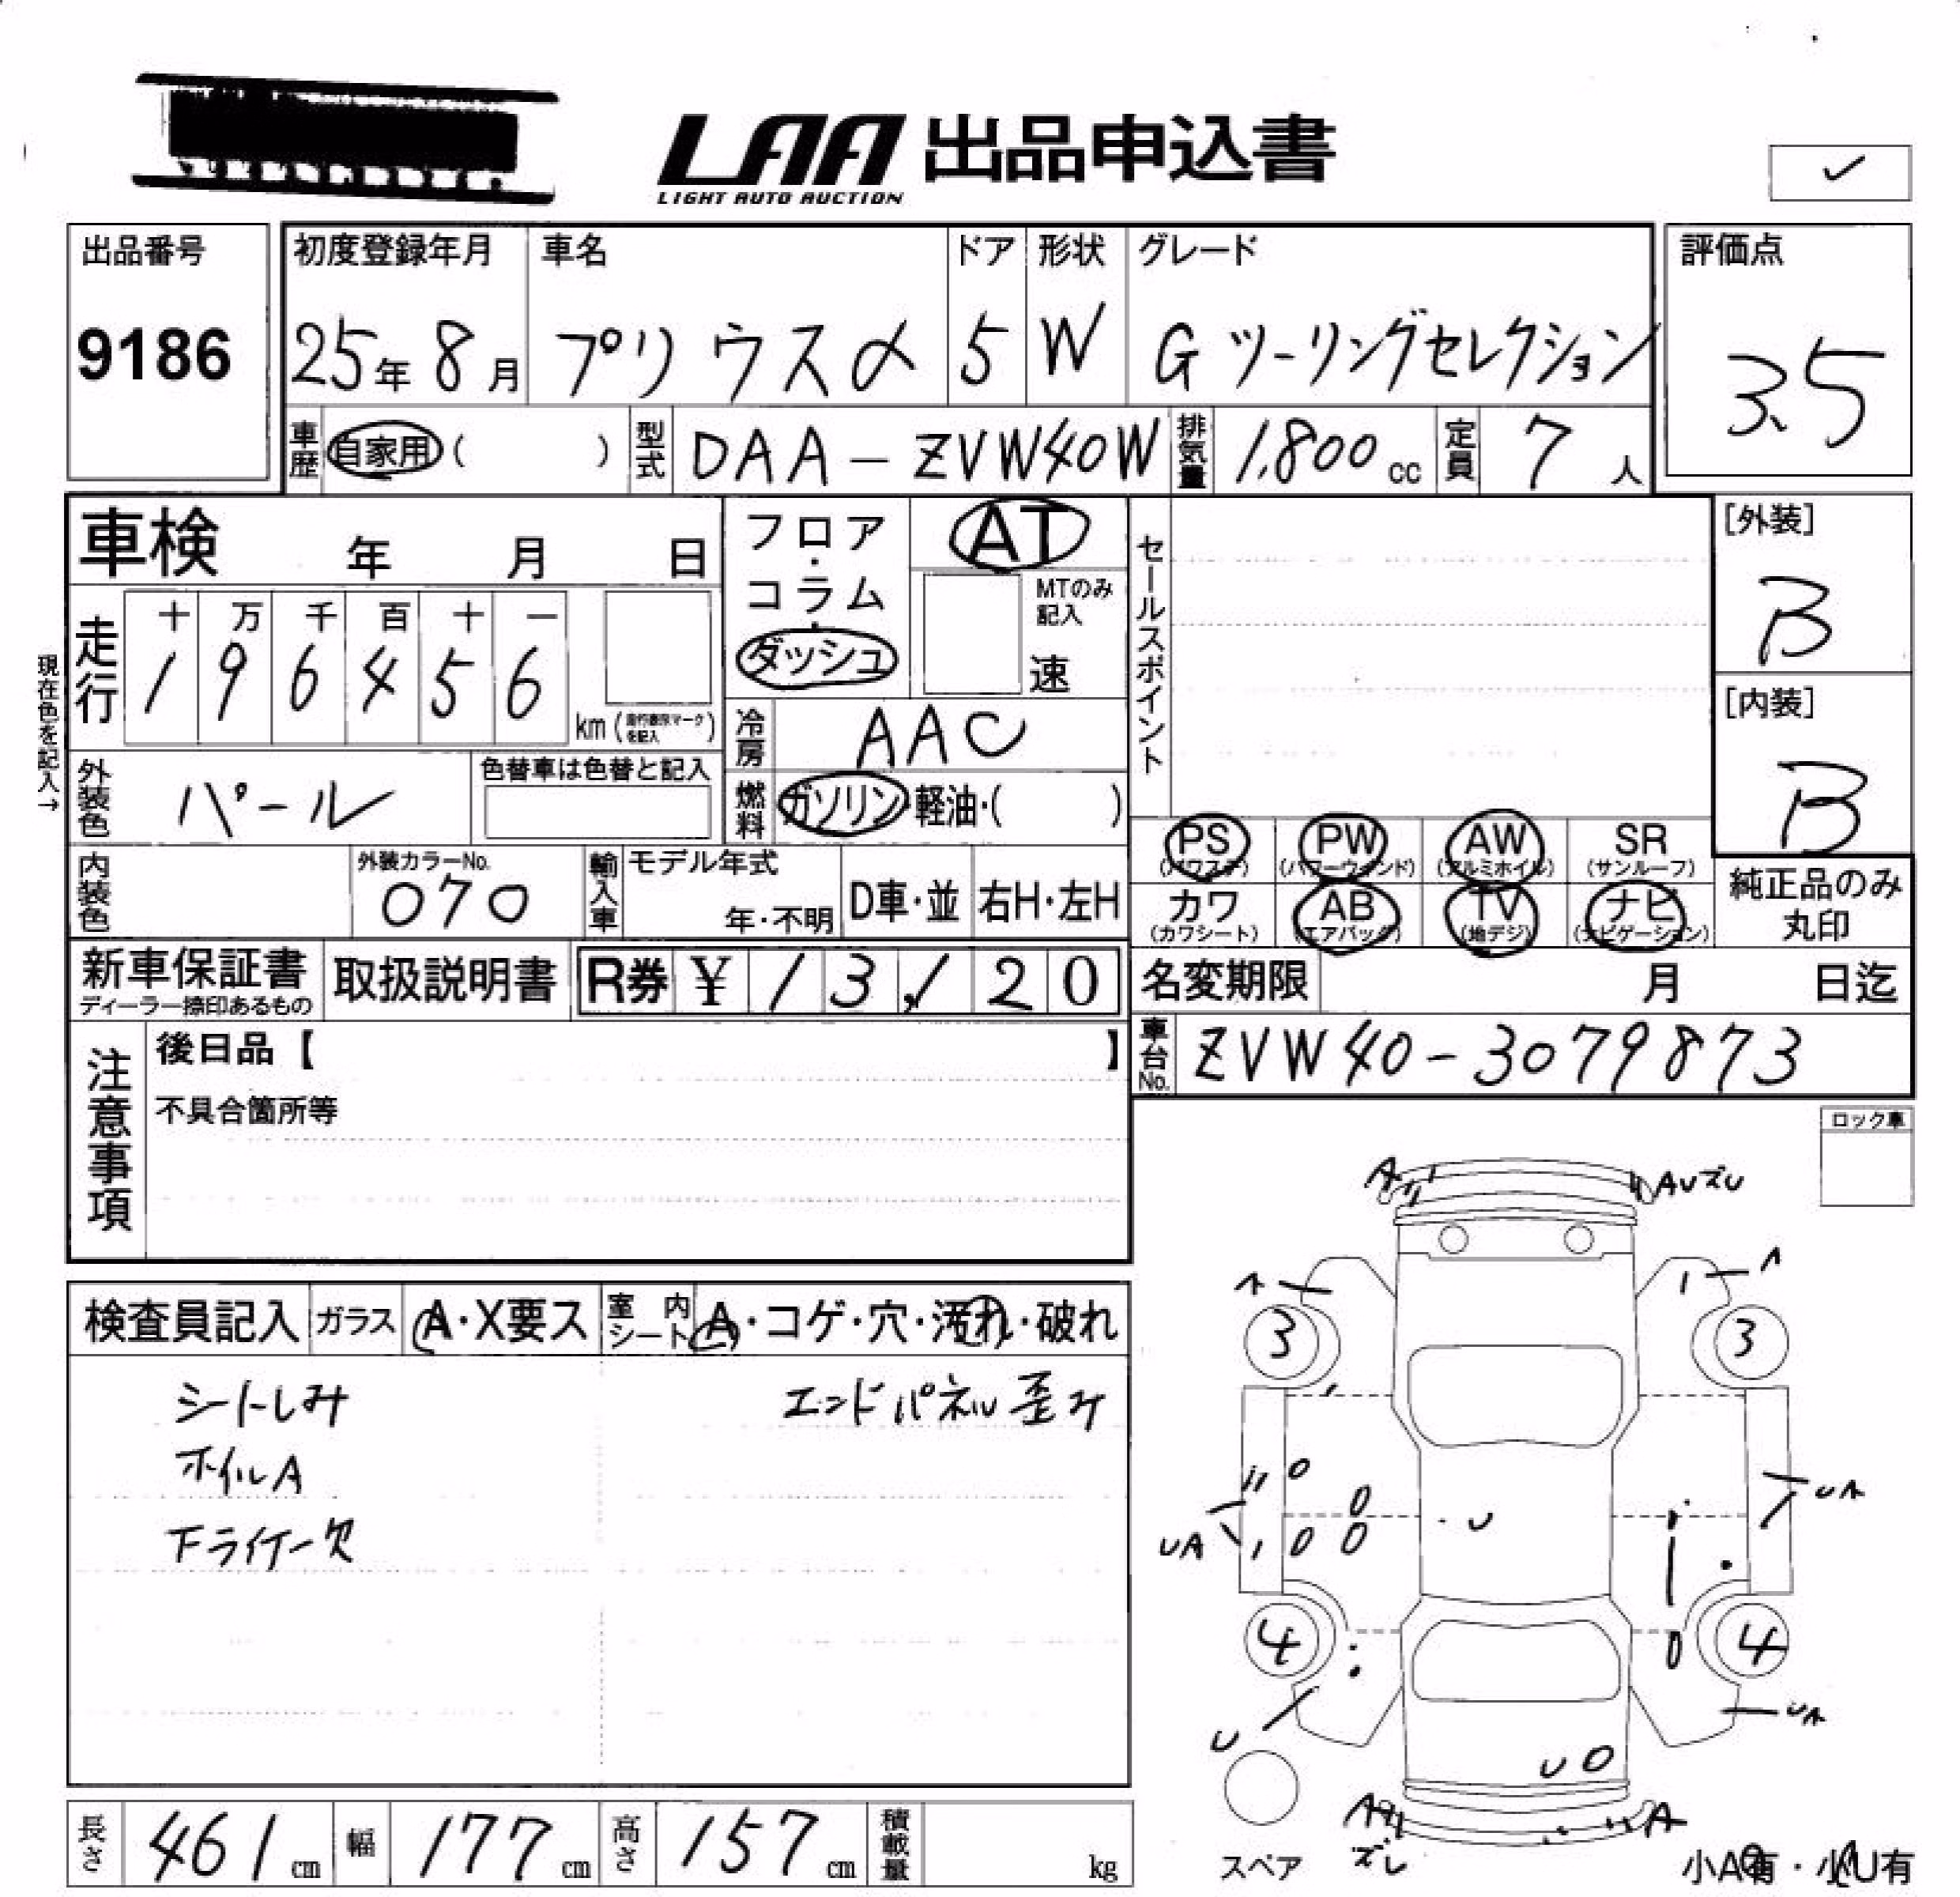 LAA 出品申込書
LIGHT AUTO AUCTION
出品番号 初度登録年月 車名 ドア 形状 グレード 評価点
9186 25年 8月 プリウスα 5 W G ツーリングセレクション 3.5
車歴 自家用 ( ) 型式 DAA-ZVW40W 排気量 1,800 cc 定員 7 人
車検 年 月 日 フロア・ AT セールスポイント [外装]
コラム・ MTのみ記入 B
走行 十 万 千 百 十 一 ダッシュ 速 [内装]
1 9 6 4 5 6 km B
現在色を記入→
冷房 AAC
外装色 パール 色替車は色替と記入 燃料 ガソリン・軽油・( )
PS PW AW SR
(パワステ) (パワーウィンド) (アルミホイル) (サンルーフ)
内装色 外装カラーNo. 070 輸入車 モデル年式 年・不明 D車・並 右H・左H
カワ AB TV ナビ 純正品のみ丸印
(カワシート) (エアバッグ) (地デジ) (ナビゲーション)
新車保証書 取扱説明書 R券 ¥ 13,120 名変期限 月 日迄
ディーラー捺印あるもの
車台No. ZVW40-3079873
注意事項 後日品【 】
不具合箇所等
ロック車
A Aひズレ
A A
3 3
UA U UA
4 4
U UA
U
A A
ズレ
スペア 小A有・小U有
検査員記入 ガラス A・X要ス 室内シート A・コゲ・穴・汚れ・破れ
シートしみ エンドパネル歪み
ホイルA
下ライナー欠
長さ 461 cm 幅 177 cm 高さ 157 cm 積載量 kg